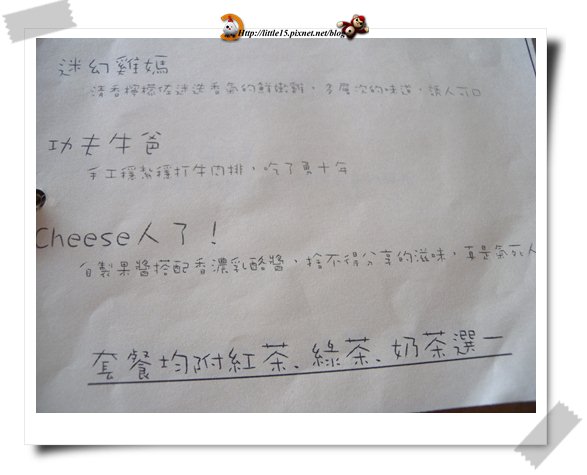 Http://little15.pixnet.net/blog
迷幻雞媽
清香檸檬佐迷迭香氣的鮮嫩雞，多層次的味道，讓人可口
功夫牛爸
手工穩紮穩打牛肉排，吃了勇十年
Cheese人了！
自製果醬搭配香濃乳酪醬，捨不得分享的滋味，真是氣死人
套餐均附紅茶、綠茶、奶茶選一